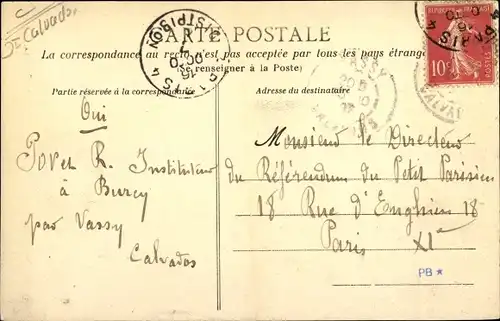 Calvados
CARTE POSTALE
La correspondance au recto n'est pas acceptée par tous les pays étrangers
(Se renseigner à la Poste)
Partie réservée à la correspondance
Adresse du destinataire
Oui
Povet R. Instituteur
à Burcy
par Vassy
Calvados
Monsieur le Directeur
du Référendum du Petit Parisien
18 Rue d'Enghien 18
Paris XI
PB *
10c
POSTES